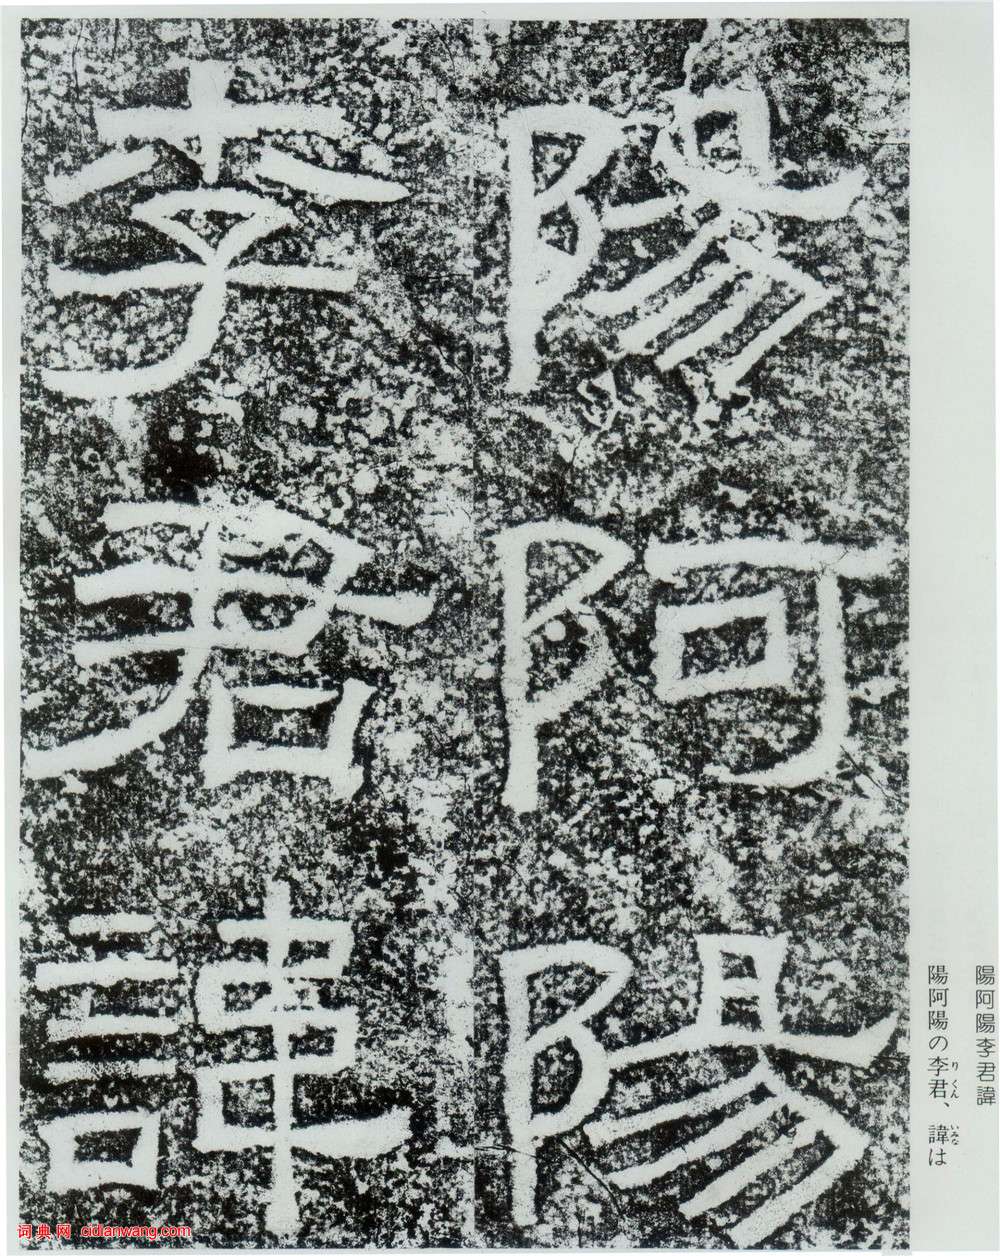 陽阿陽
李君諱
陽阿陽李君諱
陽阿陽の李君、諱は
りくん
いみな
词典网 cidianwang.com